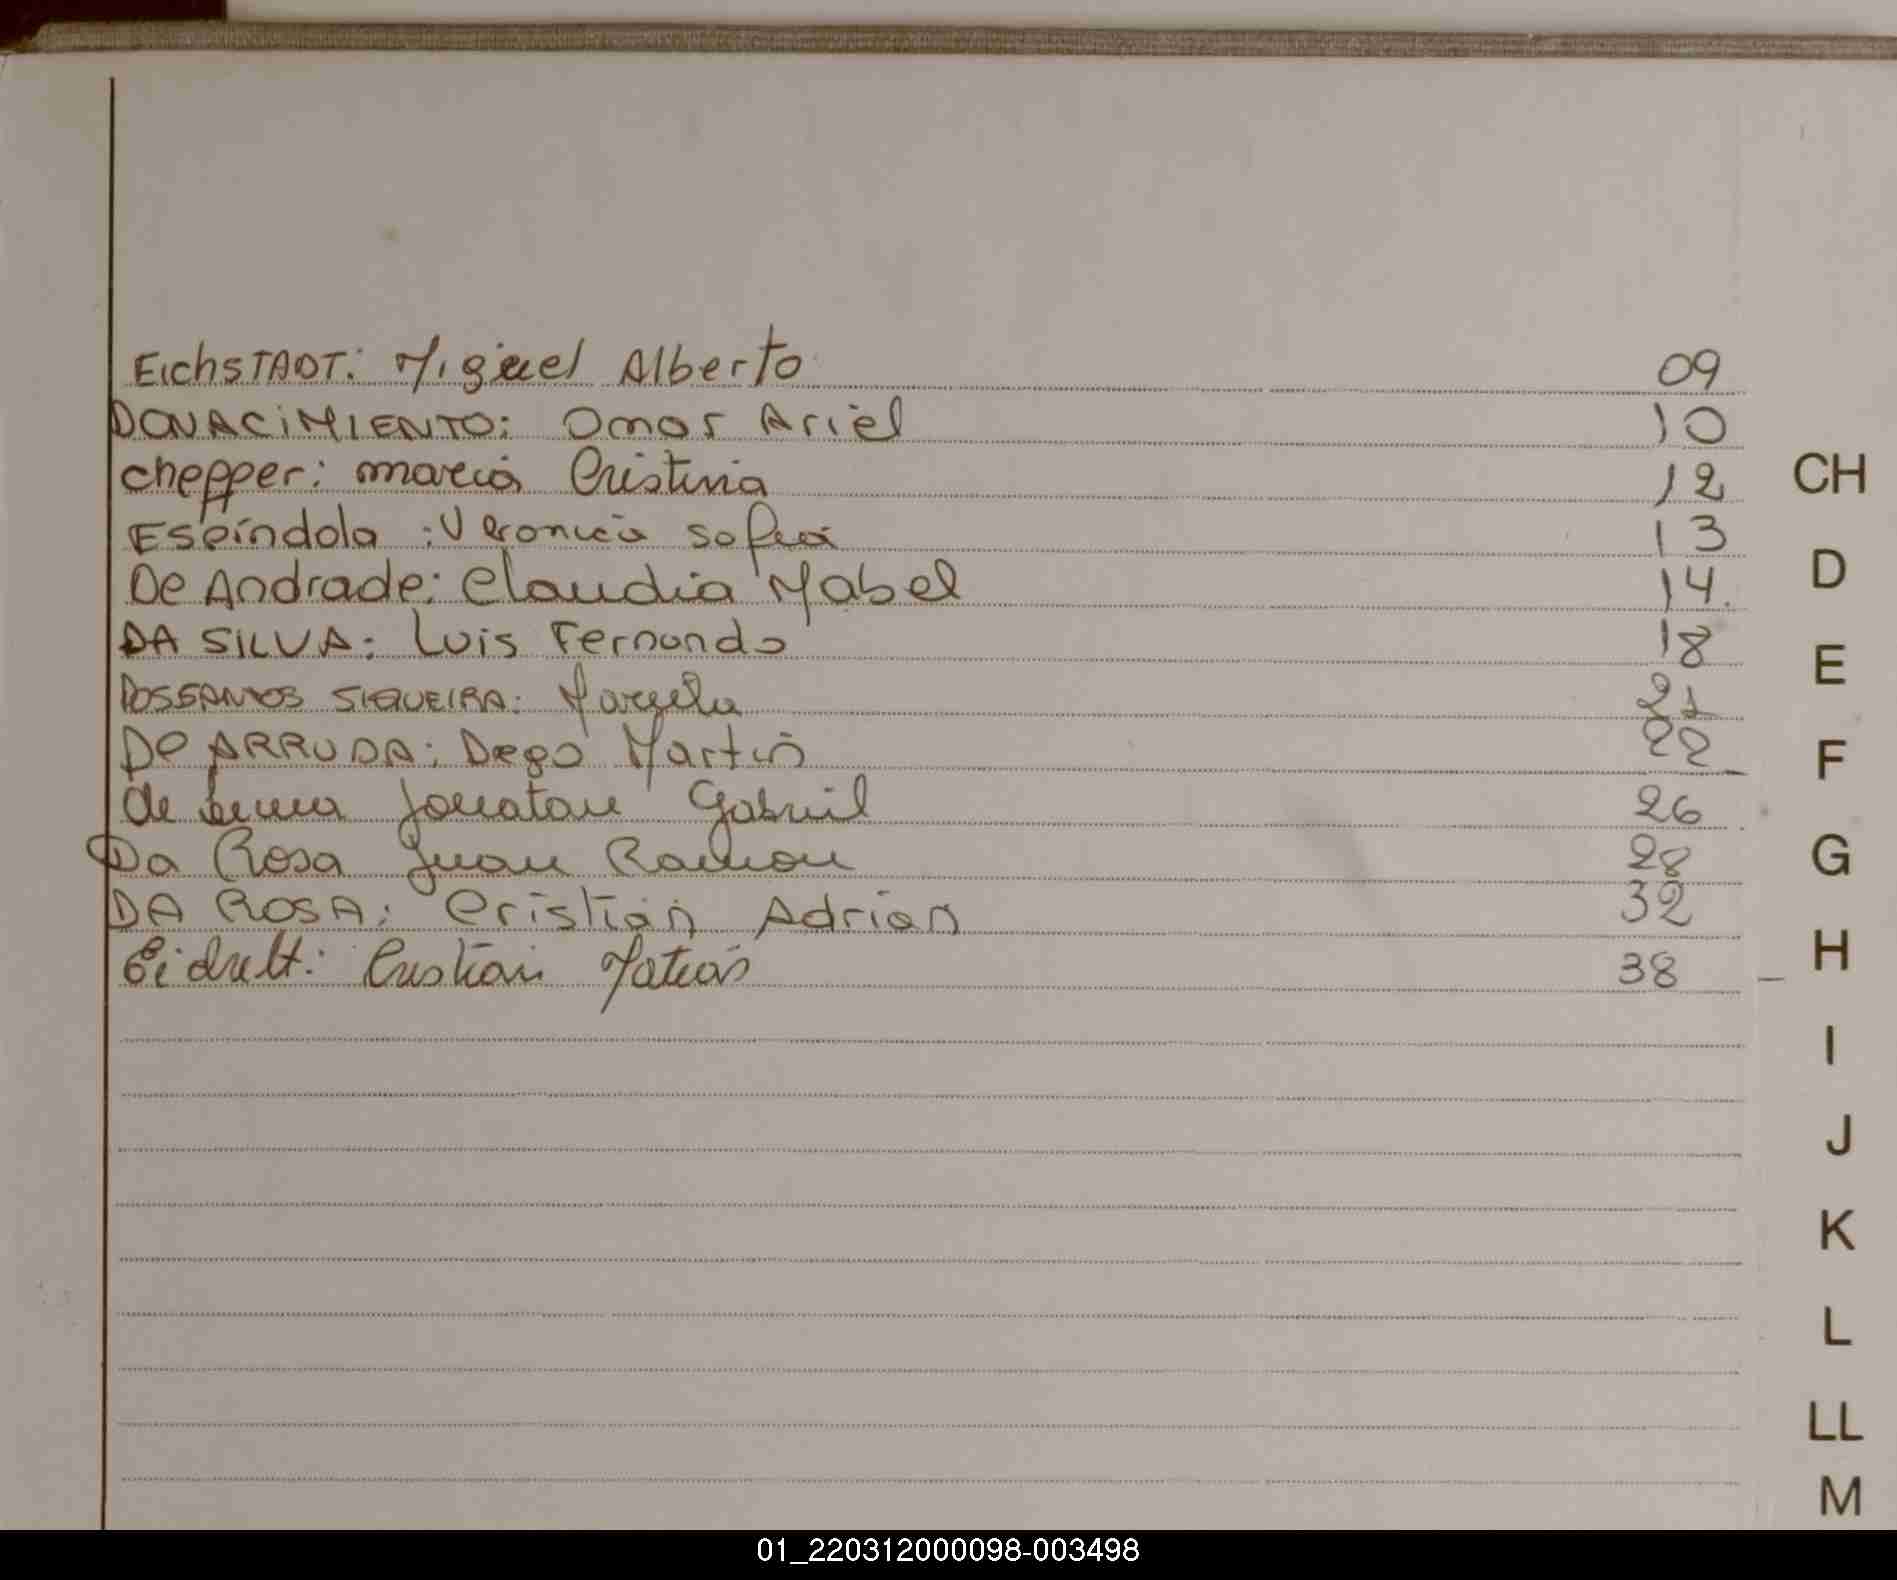 EichSTADT: Miguel Alberto 09
DONACiMIENTO: Omar Ariel 10
chepper: maria Cristina 12
CH
Espíndola : Veronica Sofia 13
De Andrade: Claudia Mabel 14.
D
DA SILVA: Luis Fernando 18
E
DOSSANTOS SIQUEIRA: Marcela 21
De ARRUDA: Diego Martin 22
F
de Lima Jonatan Gabriel 26
Da Rosa Juan Ramon 28
G
DA ROSA: Cristian Adrian 32
Cristian Matias 38
H
I
J
K
L
LL
M
01_220312000098-003498